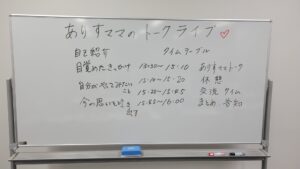 ありすママのトークライブ♡
自己紹介 タイムテーブル
目覚めたきっかけ 13:30〜15:10 ありすママトーク
自分がやってみたいこと 15:10〜15:20 休憩
15:20〜15:45 交流タイム
今の思いを吐き出す 15:45〜16:00 まとめ、告知